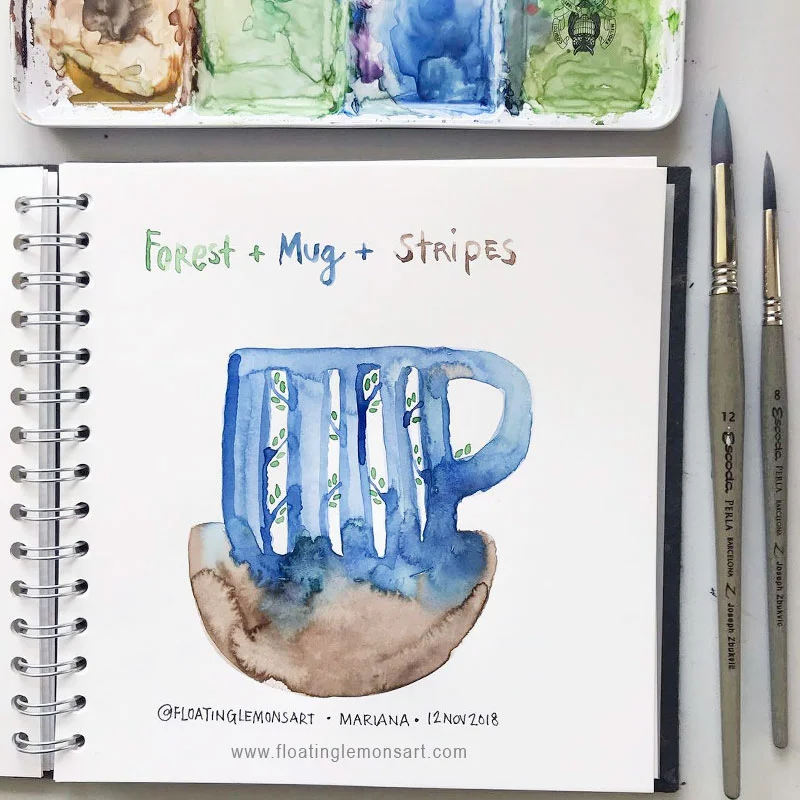 Forest + Mug + Stripes
12 Escoda PERLA BARCELONA Joseph Zbukvic
8 Escoda PERLA BARCELONA Joseph Zbukvic
@FLOATINGLEMONSART • MARIANA • 12NOV2018
www.floatinglemonsart.com